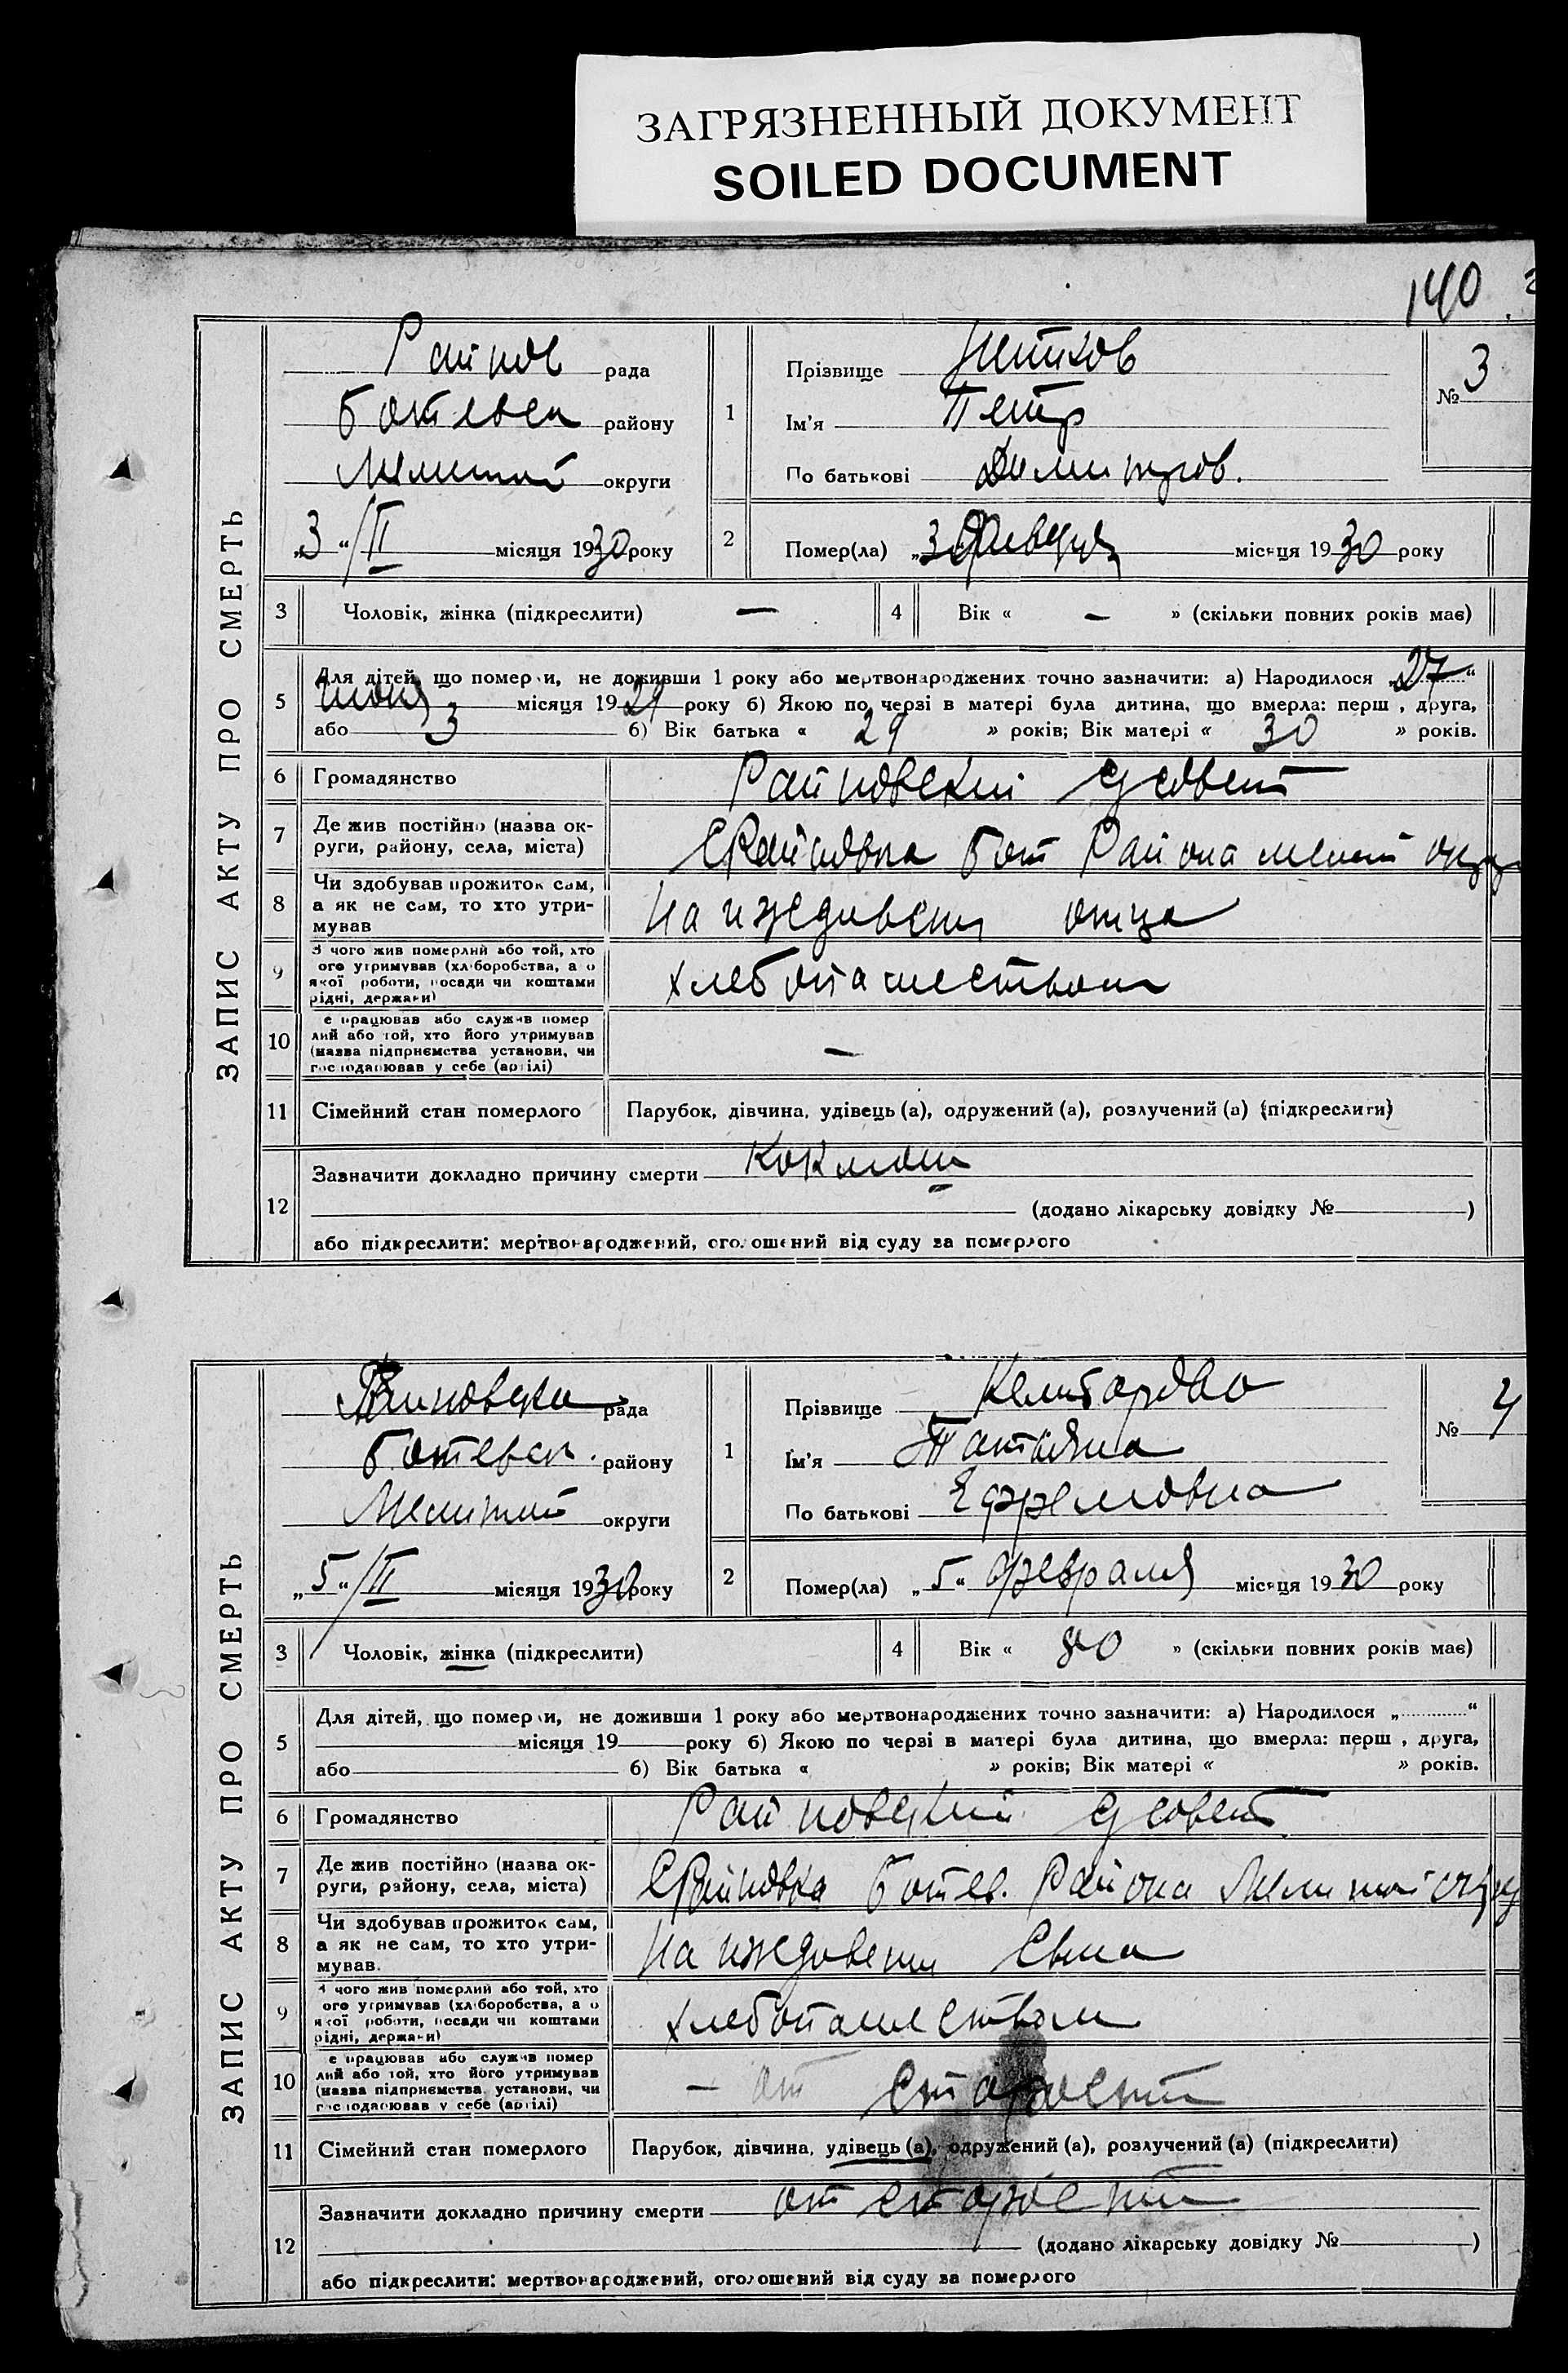 ЗАГРЯЗНЕННЫЙ ДОКУМЕНТ
SOILED DOCUMENT
140
ЗАПИС АКТУ ПРО СМЕРТЬ
Райнов рада
Ботевск району
Мелитой округи
„3“/II місяця 1930 року
1
Прізвище
Ім'я Петр
По батькові Димитров.
№ 3
2
Помер(ла) „3“ Февраля місяця 1930 року
3 Чоловік, жінка (підкреслити) —
4 Вік « — » (скільки повних років має)
5 Для дітей, що померли, не доживши 1 року або мертвонароджених точно зазначити: а) Народилося „27“
місяця 1929 року б) Якою по черзі в матері була дитина, що вмерла: перш , друга,
або 3 б) Вік батька « 29 » років; Вік матері « 30 » років.
6 Громадянство Райновский
7 Де жив постійно (назва ок-
руги, району, села, міста) С Райновка Бот Района мелит
8 Чи здобував прожиток сам,
а як не сам, то хто утри-
мував На иждивени отца
9 З чого жив померлий або той, хто
ого утримував (хліборобства, а о
якої роботи, посади чи коштами
рідні, держави) хлебопашеством
10 е працював або служив помер
лий або той, хто його утримував
(назва підприємства установи, чи
господарював у себе (артілі) —
11 Сімейний стан померлого Парубок, дівчина, удівець (а), одружений (а), розлучений (а) (підкреслити)
12 Зазначити докладно причину смерти Коклюш
(додано лікарську довідку № )
або підкреслити: мертвонароджений, оголошений від суду за померлого
ЗАПИС АКТУ ПРО СМЕРТЬ
рада
Ботевск. району
Мелитой округи
„5“/II місяця 1930 року
1
Прізвище
Ім'я Татьяна
По батькові Ефремовна
№ 4
2
Помер(ла) „5“ февраля місяця 1930 року
3 Чоловік, жінка (підкреслити)
4 Вік « 80 » (скільки повних років має)
5 Для дітей, що померли, не доживши 1 року або мертвонароджених точно зазначити: а) Народилося „ “
місяця 19 року б) Якою по черзі в матері була дитина, що вмерла: перш , друга,
або б) Вік батька « » років; Вік матері « » років.
6 Громадянство Райновский
7 Де жив постійно (назва ок-
руги, району, села, міста) С Райновка Ботев. Района
8 Чи здобував прожиток сам,
а як не сам, то хто утри-
мував. На иждивени сына
9 З чого жив померлий або той, хто
ого утримував (хліборобства, а о
якої роботи, посади чи коштами
рідні, держави) хлебопашеством
10 е працював або служив помер
лий або той, хто його утримував
(назва підприємства установи, чи
господарював у себе (артілі) — от старости
11 Сімейний стан померлого Парубок, дівчина, удівець (а), одружений (а), розлучений (а) (підкреслити)
12 Зазначити докладно причину смерти от старости
(додано лікарську довідку № )
або підкреслити: мертвонароджений, оголошений від суду за померлого